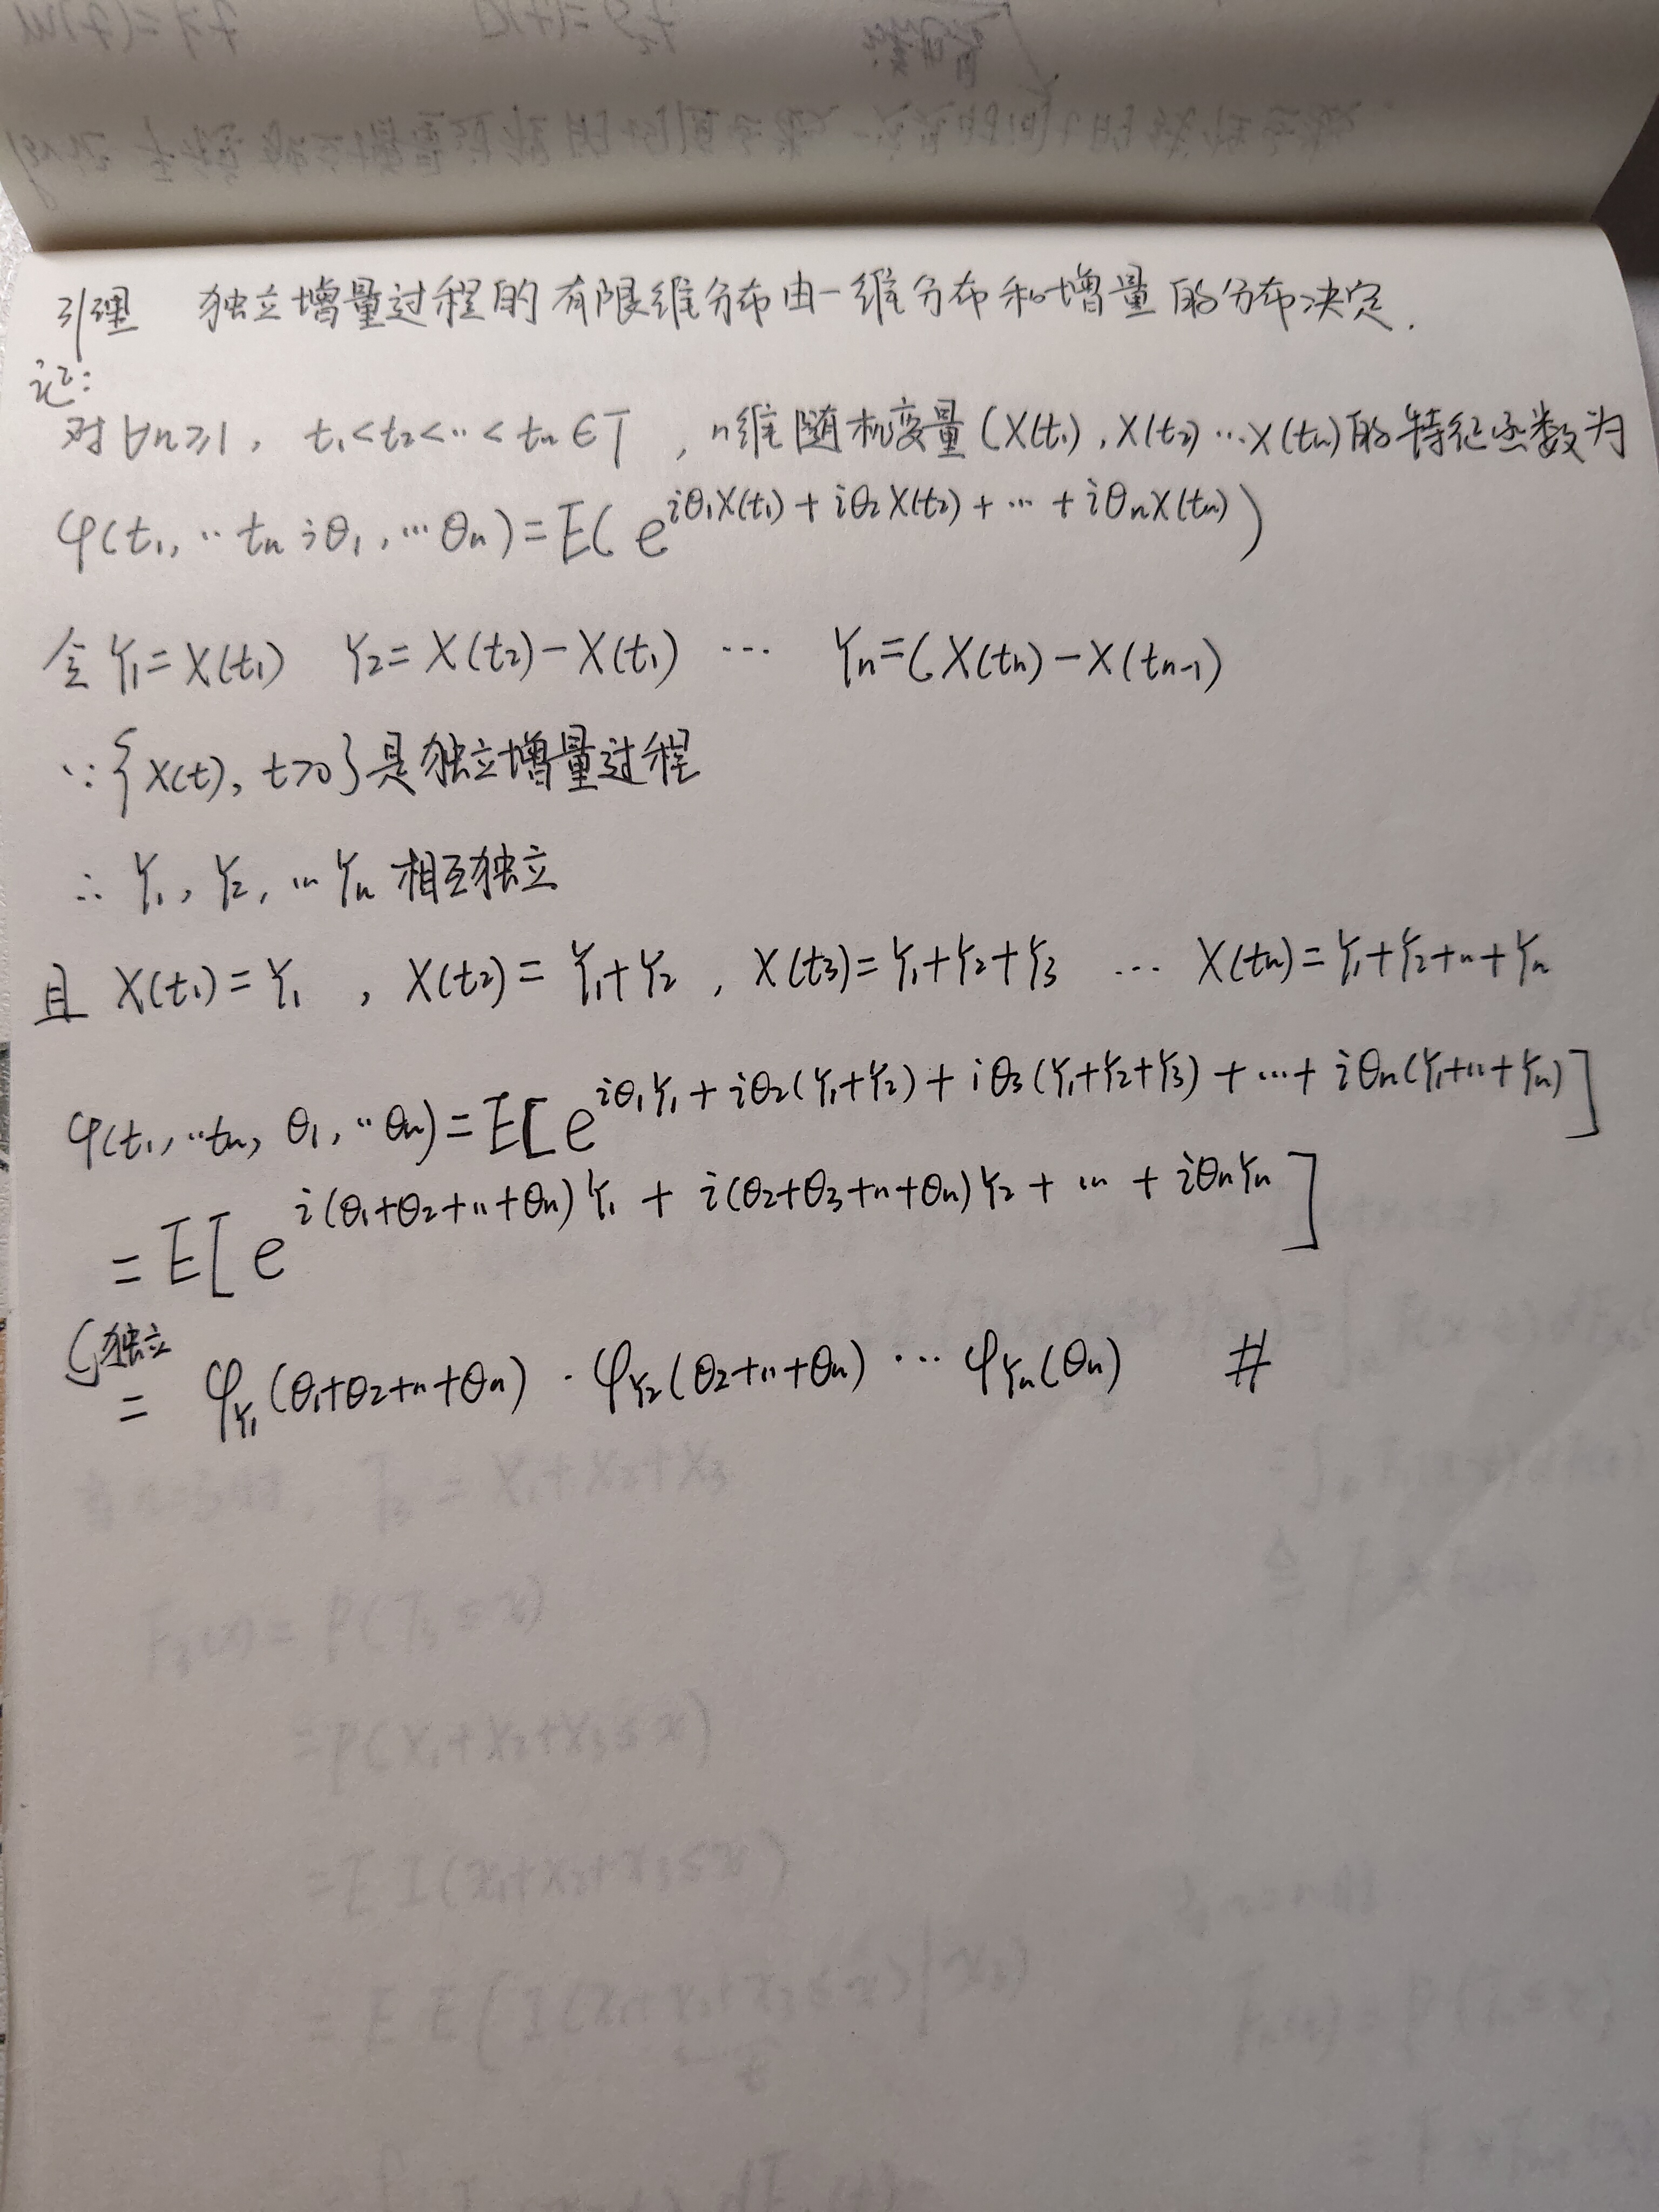 引理 独立增量过程的有限维分布由一维分布和增量的分布决定.
证:
对∀n≥1, t₁<t₂<…<tₙ∈T , n维随机变量(X(t₁),X(t₂)…X(tₙ)的特征函数为
φ(t₁,…tₙ;θ₁,…θₙ)=E(e^{iθ₁X(t₁)+iθ₂X(t₂)+…+iθₙX(tₙ)})
令Y₁=X(t₁) Y₂=X(t₂)-X(t₁) … Yₙ=(X(tₙ)-X(tₙ₋₁)
∵{X(t), t>0}是独立增量过程
∴ Y₁, Y₂, …Yₙ 相互独立
且 X(t₁)=Y₁ , X(t₂)=Y₁+Y₂ , X(t₃)=Y₁+Y₂+Y₃ … X(tₙ)=Y₁+Y₂+…+Yₙ
φ(t₁,…tₙ, θ₁,…θₙ)=E[e^{iθ₁Y₁+iθ₂(Y₁+Y₂)+iθ₃(Y₁+Y₂+Y₃)+…+iθₙ(Y₁+…+Yₙ)}]
=E[e^{i(θ₁+θ₂+…+θₙ)Y₁+i(θ₂+θ₃+…+θₙ)Y₂+…+iθₙYₙ}]
独立
= φ_{Y₁}(θ₁+θ₂+…+θₙ)·φ_{Y₂}(θ₂+…+θₙ)…φ_{Yₙ}(θₙ) #